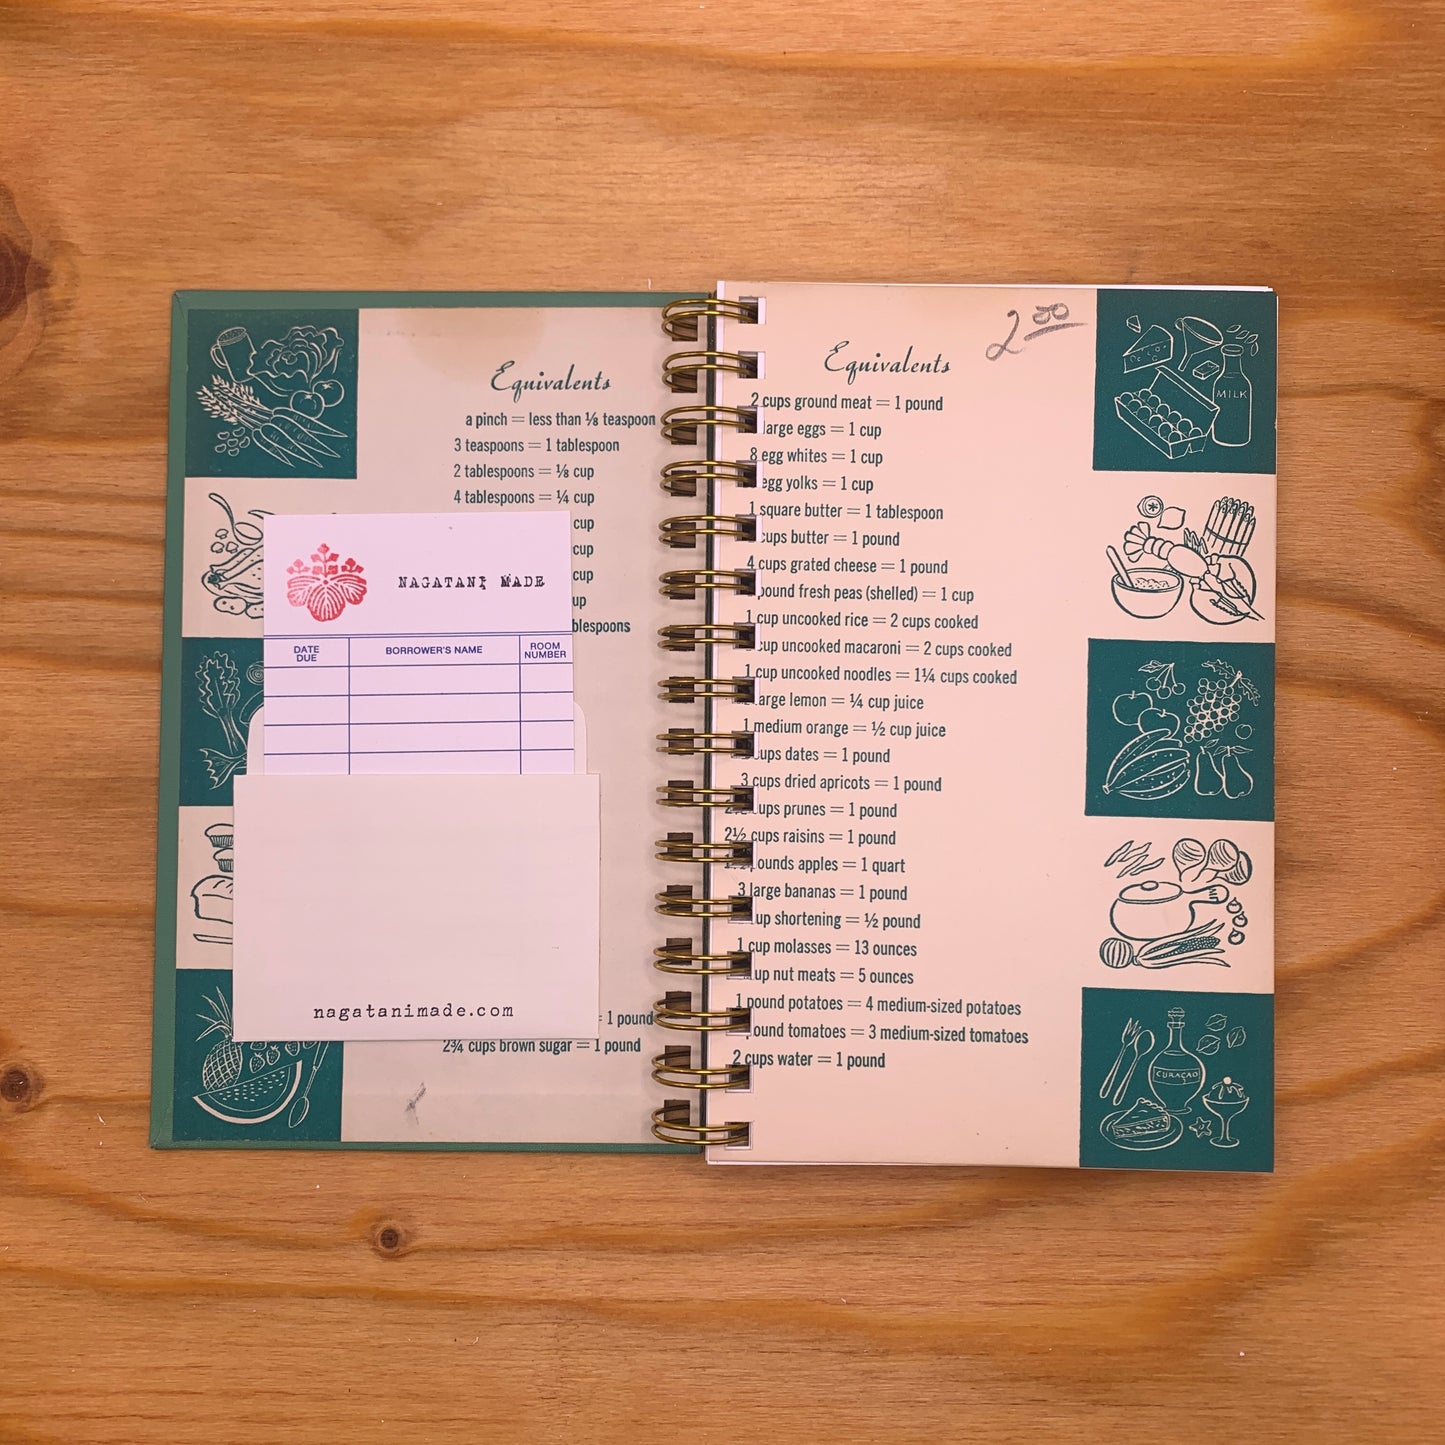 Equivalents
a pinch = less than ⅛ teaspoon
3 teaspoons = 1 tablespoon
2 tablespoons = ⅛ cup
4 tablespoons = ¼ cup
cup
cup
cup
up
blespoons
NAGATANI MADE
DATE DUE
BORROWER'S NAME
ROOM NUMBER
nagatanimade.com
= 1 pound
2¾ cups brown sugar = 1 pound
2.00
Equivalents
2 cups ground meat = 1 pound
large eggs = 1 cup
8 egg whites = 1 cup
egg yolks = 1 cup
1 square butter = 1 tablespoon
cups butter = 1 pound
4 cups grated cheese = 1 pound
pound fresh peas (shelled) = 1 cup
1 cup uncooked rice = 2 cups cooked
cup uncooked macaroni = 2 cups cooked
1 cup uncooked noodles = 1¼ cups cooked
large lemon = ¼ cup juice
1 medium orange = ½ cup juice
cups dates = 1 pound
3 cups dried apricots = 1 pound
cups prunes = 1 pound
2½ cups raisins = 1 pound
pounds apples = 1 quart
3 large bananas = 1 pound
cup shortening = ½ pound
1 cup molasses = 13 ounces
cup nut meats = 5 ounces
1 pound potatoes = 4 medium-sized potatoes
pound tomatoes = 3 medium-sized tomatoes
2 cups water = 1 pound
MILK
CURAÇAO